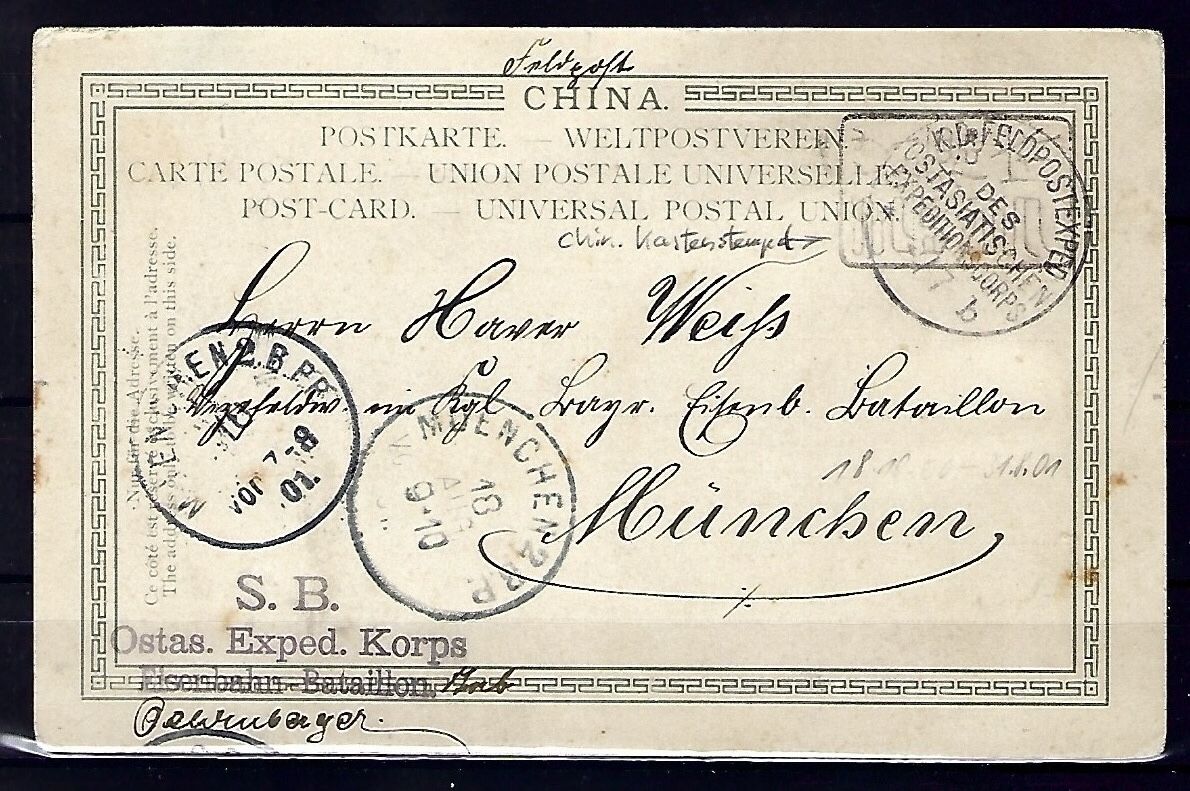 Feldpost
CHINA.
POSTKARTE. — WELTPOSTVEREIN.
CARTE POSTALE. — UNION POSTALE UNIVERSELLE.
POST-CARD. — UNIVERSAL POSTAL UNION.
K.D. FELDPOSTEXPED
DES
OSTASIATISCHEN
EXPEDITIONSCORPS
b
chin. Kastenstempel
Nur für die Adresse.
Ce côté est réservé exclusivement à l'adresse.
The address only to be written on this side.
Herrn Xaver Weiß
Vizefeldw. im Kgl. Bayr. Eisenb. Bataillon
München
MUENCHEN 2.B.P.R.
18
VOR 7-8
01.
MUENCHEN 2 B.P.
18
AUG
9-10
S. B.
Ostas. Exped. Korps
Eisenbahn-Bataillon.